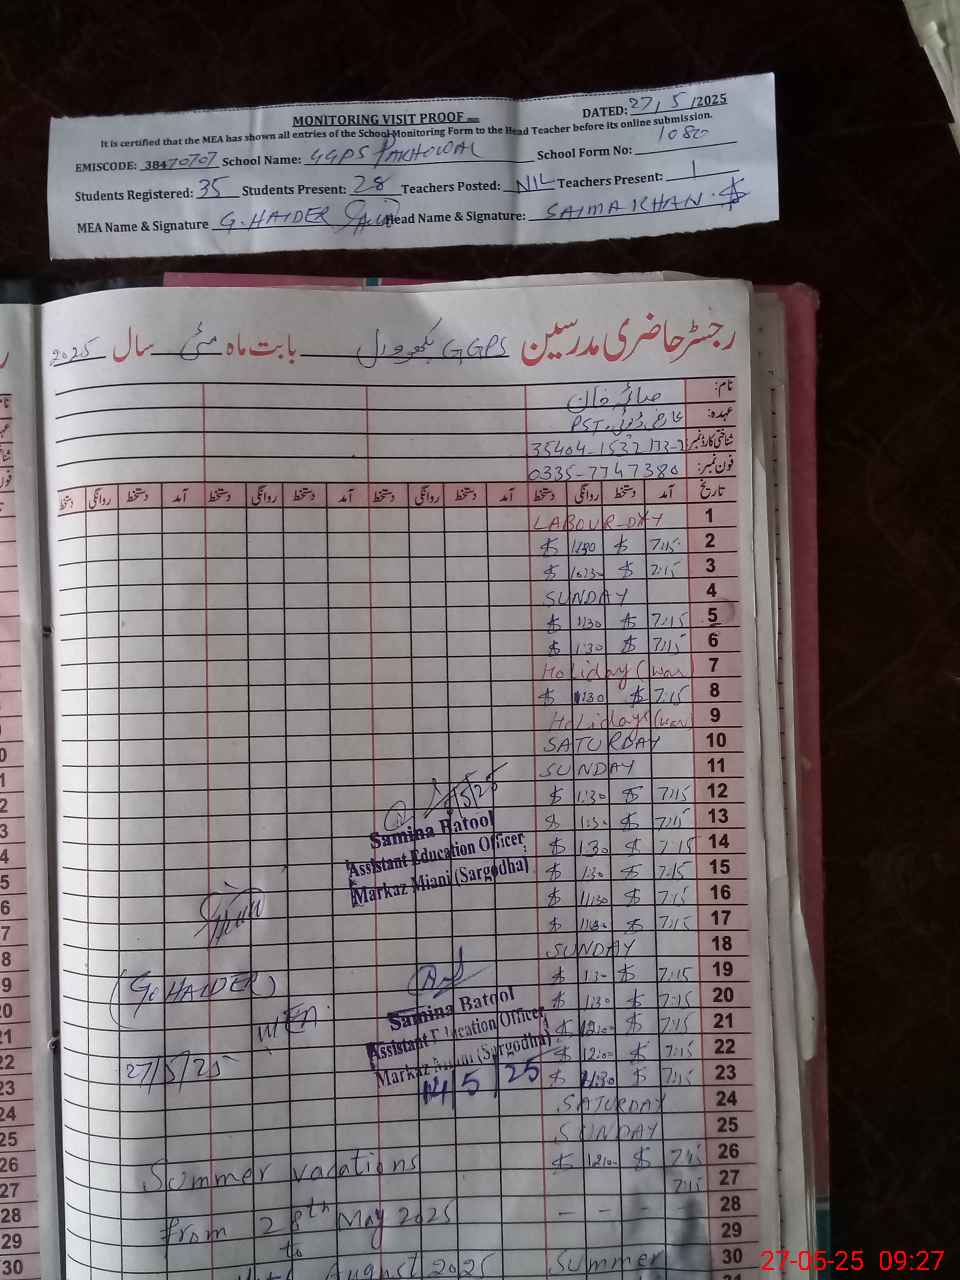 MONITORING VISIT PROOF
DATED: 27/5/2025
It is certified that the MEA has shown all entries of the School Monitoring Form to the Head Teacher before its online submission.
EMISCODE: 38470707 School Name: GGPS PAKHOWAL School Form No: 1080
Students Registered: 35 Students Present: 28 Teachers Posted: NIL Teachers Present: 1
MEA Name & Signature G. HAIDER Head Name & Signature: SAIMA KHAN
رجسٹر حاضری مدرسین GGPS بابت ماہ مئی سال 2025
نام: صائمہ خان
عہدہ: PST
شناختی کارڈ نمبر: 35404-1532
فون نمبر: 0335-7747380
تاریخ آمد دستخط روانگی دستخط آمد دستخط روانگی دستخط آمد دستخط روانگی دستخط آمد دستخط روانگی دستخط
1 LABOUR-DAY
2 7:15 1:30
3 7:15
4 SUNDAY
5 7:15 1:30
6 7:15 1:30
7 Holiday (war)
8 7:15 1:30
9 Holidays (war)
10 SATURDAY
11 SUNDAY
12 7:15 1:30
13 7:15 1:30
14 7:15 1:30
15 7:15 1:30
16 7:15 11:30
17 7:15 11:30
18 SUNDAY
19 7:15 1:30
20 7:15 1:30
21 7:15 12:00
22 7:15 12:00
23 7:15 11:30
24 SATURDAY
25 SUNDAY
26 7:15 12:00
27 7:15
28 — — — —
29
30 Summer
Samina Batool
Assistant Education Officer
Markaz Miani (Sargodha)
(G. HAIDER)
MEA
27/5/25
Samina Batool
Assistant Education Officer
Markaz Miani (Sargodha)
14/5/25
Summer vacations
from 28th May 2025
to
August 2025
27-05-25 09:27